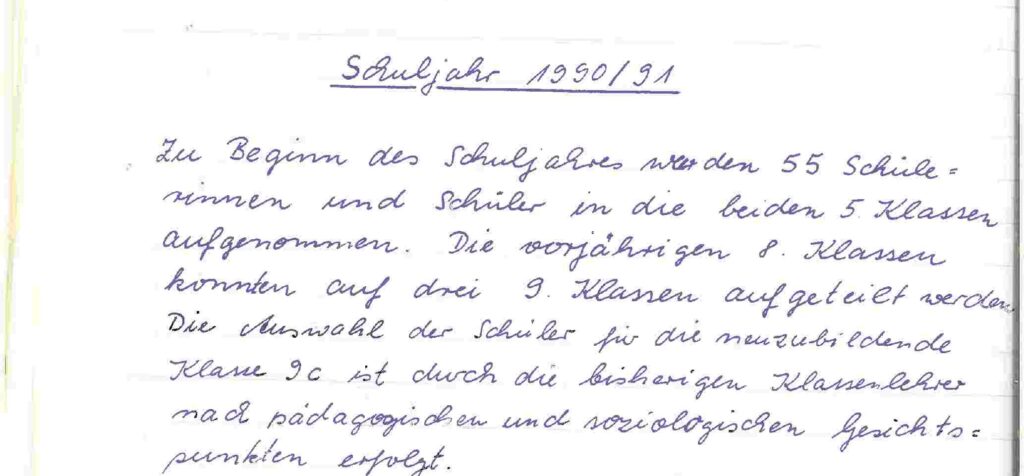 Schuljahr 1990/91
Zu Beginn des Schuljahres werden 55 Schüle=
rinnen und Schüler in die beiden 5. Klassen
aufgenommen. Die vorjährigen 8. Klassen
konnten auf drei 9. Klassen aufgeteilt werden
Die Auswahl der Schüler für die neuzubildende
Klasse 9c ist durch die bisherigen Klassenlehrer
nach pädagogischen und soziologischen Gesichts=
punkten erfolgt.